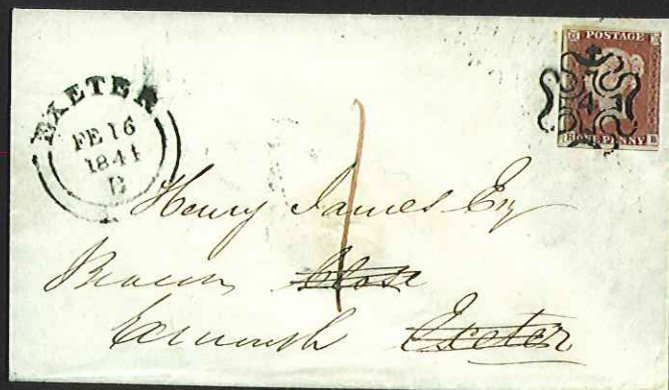 POSTAGE
4
ONE PENNY
EXETER
FE 16
1844
Henry James Esq
Beacon Close
Exmouth Exeter